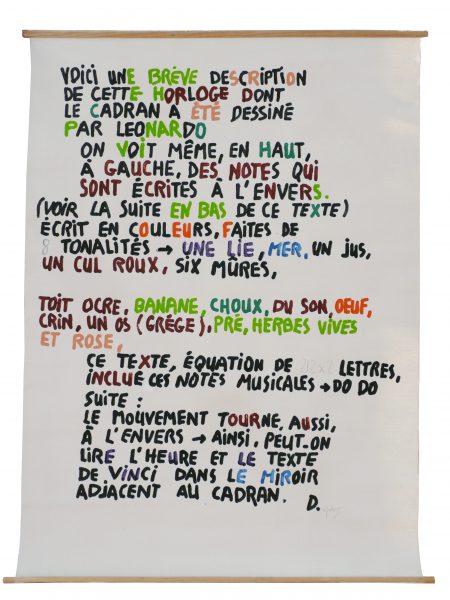 VOICI UNE BRÈVE DESCRIPTION
DE CETTE HORLOGE DONT
LE CADRAN A ÉTÉ DESSINÉ
PAR LEONARDO
ON VOIT MÊME, EN HAUT,
À GAUCHE, DES NOTES QUI
SONT ÉCRITES À L'ENVERS.
(VOIR LA SUITE EN BAS DE CE TEXTE)
ÉCRIT EN COULEURS, FAITES DE
8 TONALITÉS → UNE LIE, MER, UN JUS,
UN CUL ROUX, SIX MÛRES,
TOIT OCRE, BANANE, CHOUX, DU SON, OEUF,
CRIN, UN OS (GRÉGE), PRÉ, HERBES VIVES
ET ROSE,
CE TEXTE, ÉQUATION DE LETTRES,
INCLUE CES NOTES MUSICALES → DO DO
SUITE :
LE MOUVEMENT TOURNE, AUSSI,
À L'ENVERS → AINSI, PEUT-ON
LIRE L'HEURE ET LE TEXTE
DE VINCI DANS LE MIROIR
ADJACENT AU CADRAN. D.